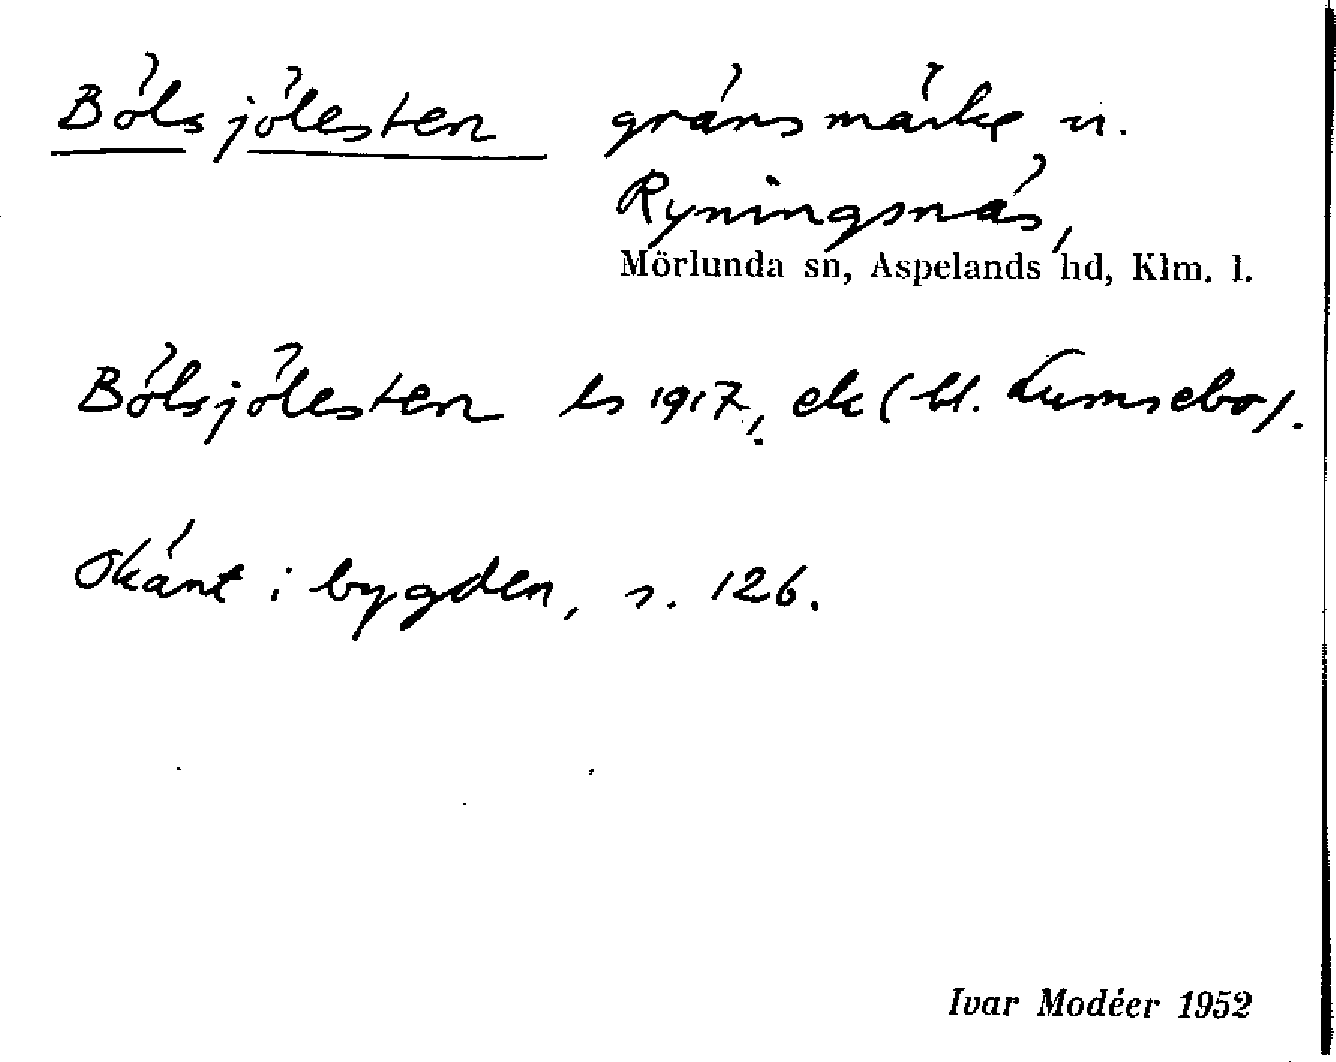 Bölsjölesten gränsmärke n.
Ryningsnäs,
Mörlunda sn, Aspelands hd, Klm. l.
Bölsjölesten ls 1917, ek (bl. Lumsebo).
Okänt i bygden, s. 126.
Ivar Modéer 1952